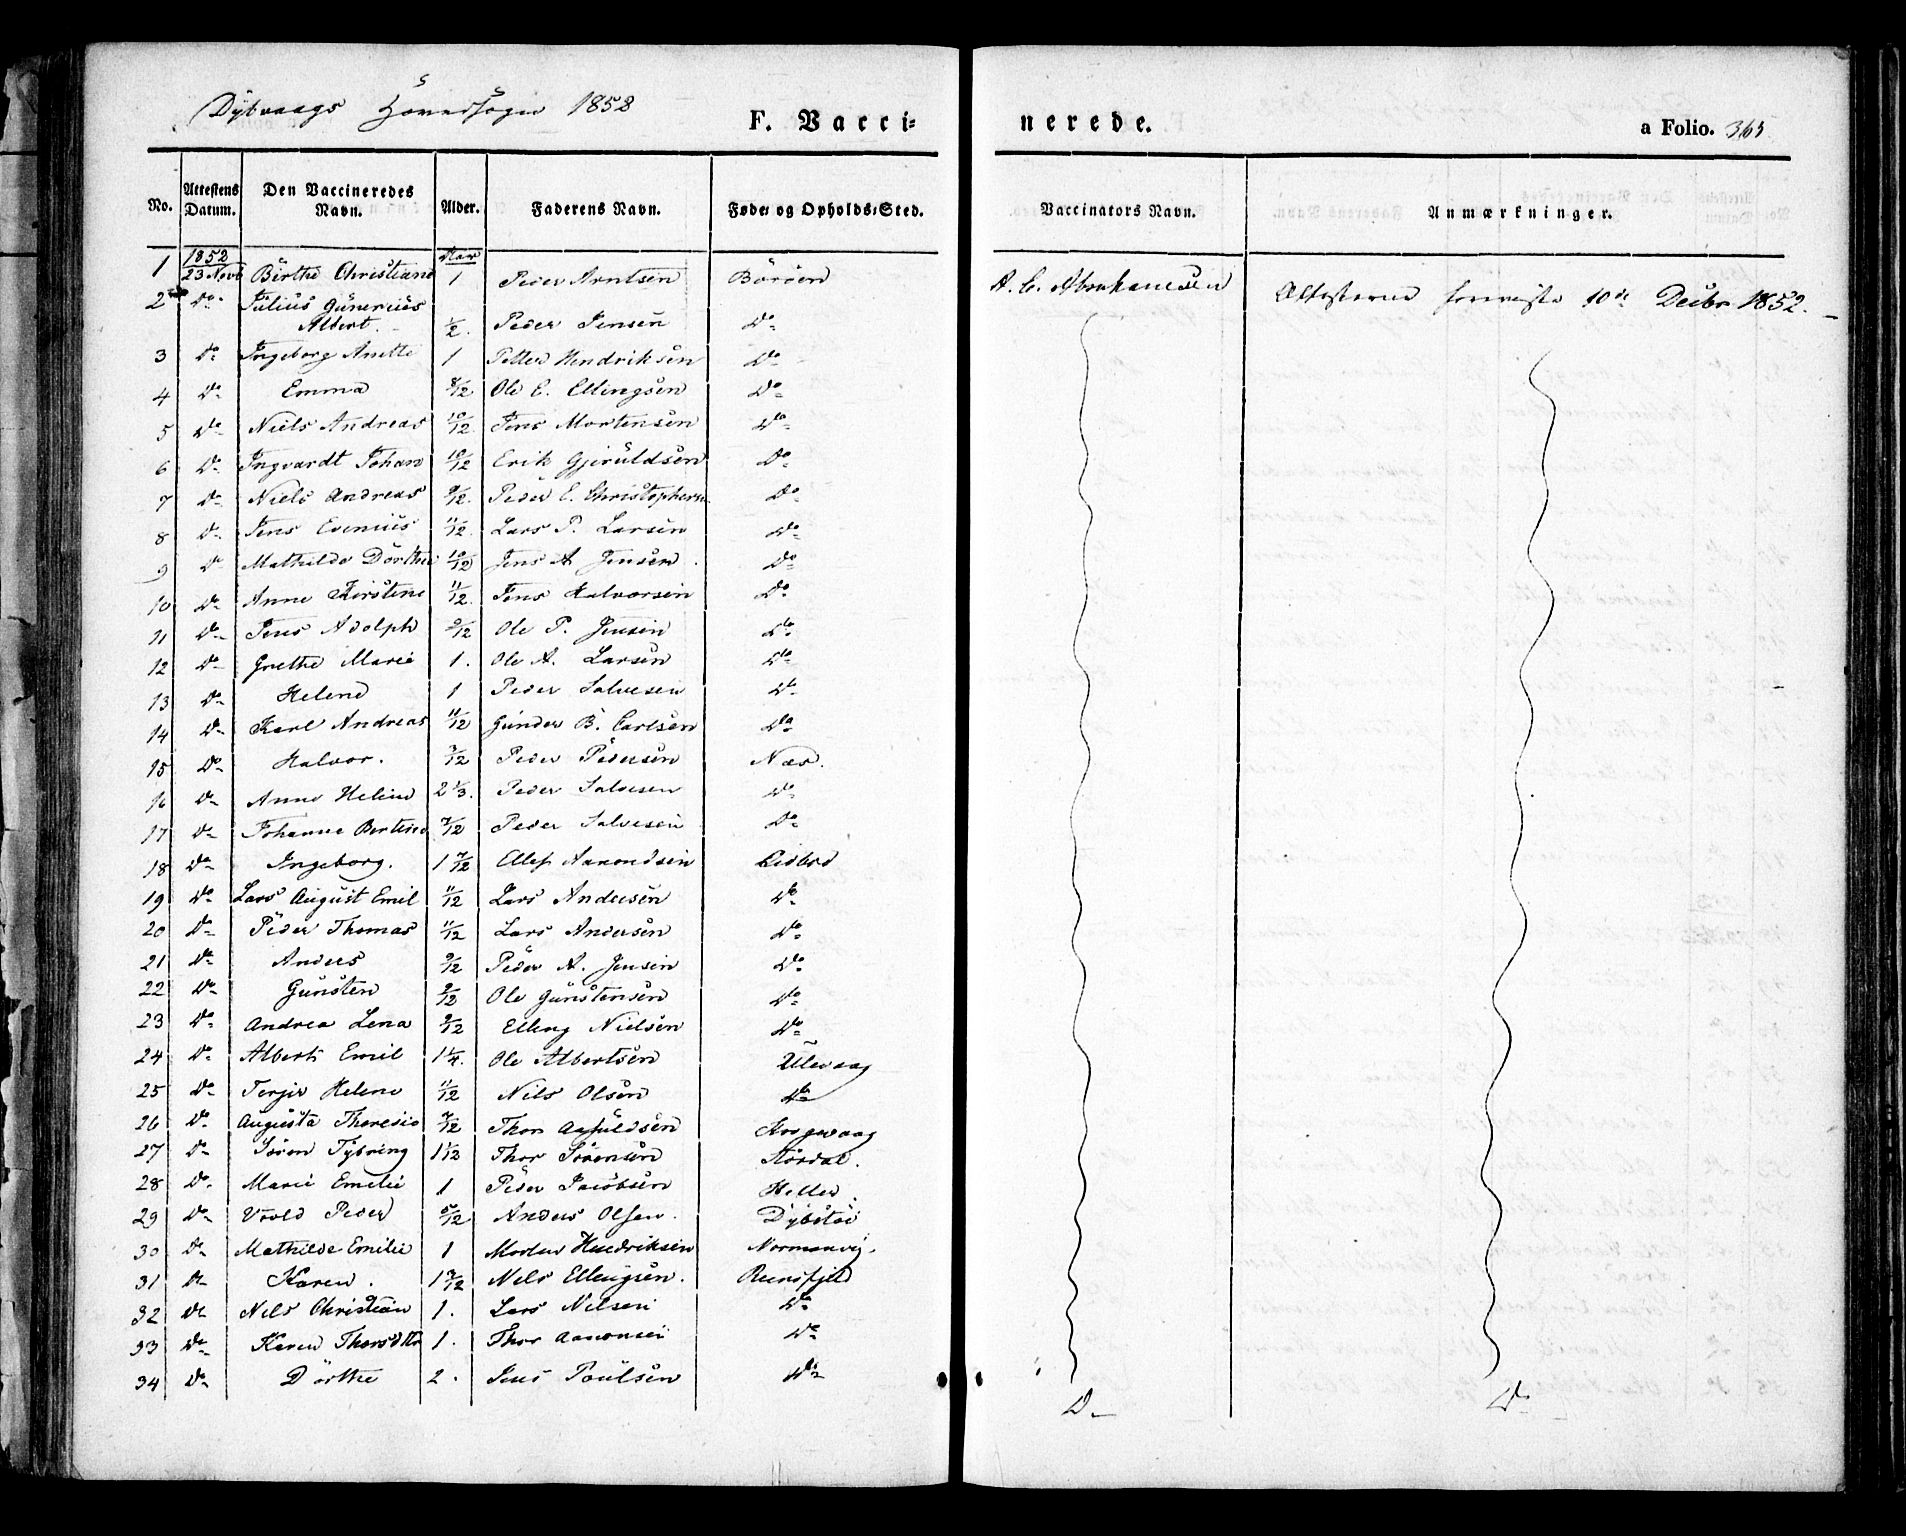 Dybvaags Hovedsogn 1852
F. Vacci-
nerede.
a Folio. 365
No. Attestens Datum. Den Vaccineredes Navn. Alder. Faderens Navn. Føde- og Opholds-Sted. Vaccinators Navn. Anmærkninger.
1 1852 23 Novb Birthe Christiane Aar 1 Peder Arntsen Borøen A. C. Abrahamsen Attesterne foreviste 10de Decbr 1852.
2 Do Julius Gunerius
Albert. 1/2. Peder Jensen Do
3 Do Ingeborg Anette 1 Petter Hendriksen Do
4 Do Emma 8/12 Ole E. Ellingsen Do
5 Do Niels Andreas 10/12 Jens Mortensen Do
6 Do Ingvardt Johan 10/12 Erik Gjeruldsen Do
7 Do Niels Andreas 9/12. Peder E. Christophersen Do
8 Do Jens Evenius 11/12 Lars P. Larsen Do
9 Do Mathilde Dorthe 10/12 Jens A Jensen. Do
10 Do Anne Kirstine 11/12. Jens Halvorsen Do
11 Do Jens Adolph 9/12 Ole P. Jensen Do
12 Do Grethe Marie 1. Ole A. Larsen Do
13 Do Helene 1 Peder Salvesen Do
14 Do Karl Andreas 11/12 Gunder B. Carlsen Do
15 Do Halvor. 3/12 Peder Pedersen Næs.
16 Do Anne Helene 2 1/3. Peder Salvesen Do
17 Do Johanne Bertine 7/12 Peder Salvesen Do
18 Do Ingeborg. 1 7/12 Ellef Aamondsen Eidbod
19 Do Lars August Emil 11/12 Lars Andersen Do
20 Do Peder Thomas 11/12 Lars Andersen Do
21 Do Anders 9/12 Peder A. Jensen Do
22 Do Gunsten 9/12 Ole Gunstensen Do
23 Do Andrea Lena 9/12 Elling Nielsen Do
24 Do Albert Emil 1 1/4. Ole Albertsen Ulevaag
25 Do Terjer Helene 11/12 Nils Olsen Do
26 Do Augusta Theresie 7/12 Thor Aasuldsen Krogvaag
27 Do Søren Tybring 1 1/12 Thor Sørensen Størdal.
28 Do Marie Emelie 1 Peder Jacobsen Helle.
29 Do Vrold Peder 5/12 Anders Olsen. Dybstøe
30 Do Mathilde Emilie 1 Morten Hendriksen Normanvig.
31 Do Karen. 1 3/12 Nels Ellingsen. Reensfjeld
32 Do Nels Christian 1. Lars Nelsen Do
33 Do Karen Thorsdtr 1. Thor Aanonsen Do
34 Do Dorthe 2. Jens Poulsen Do
Do Do